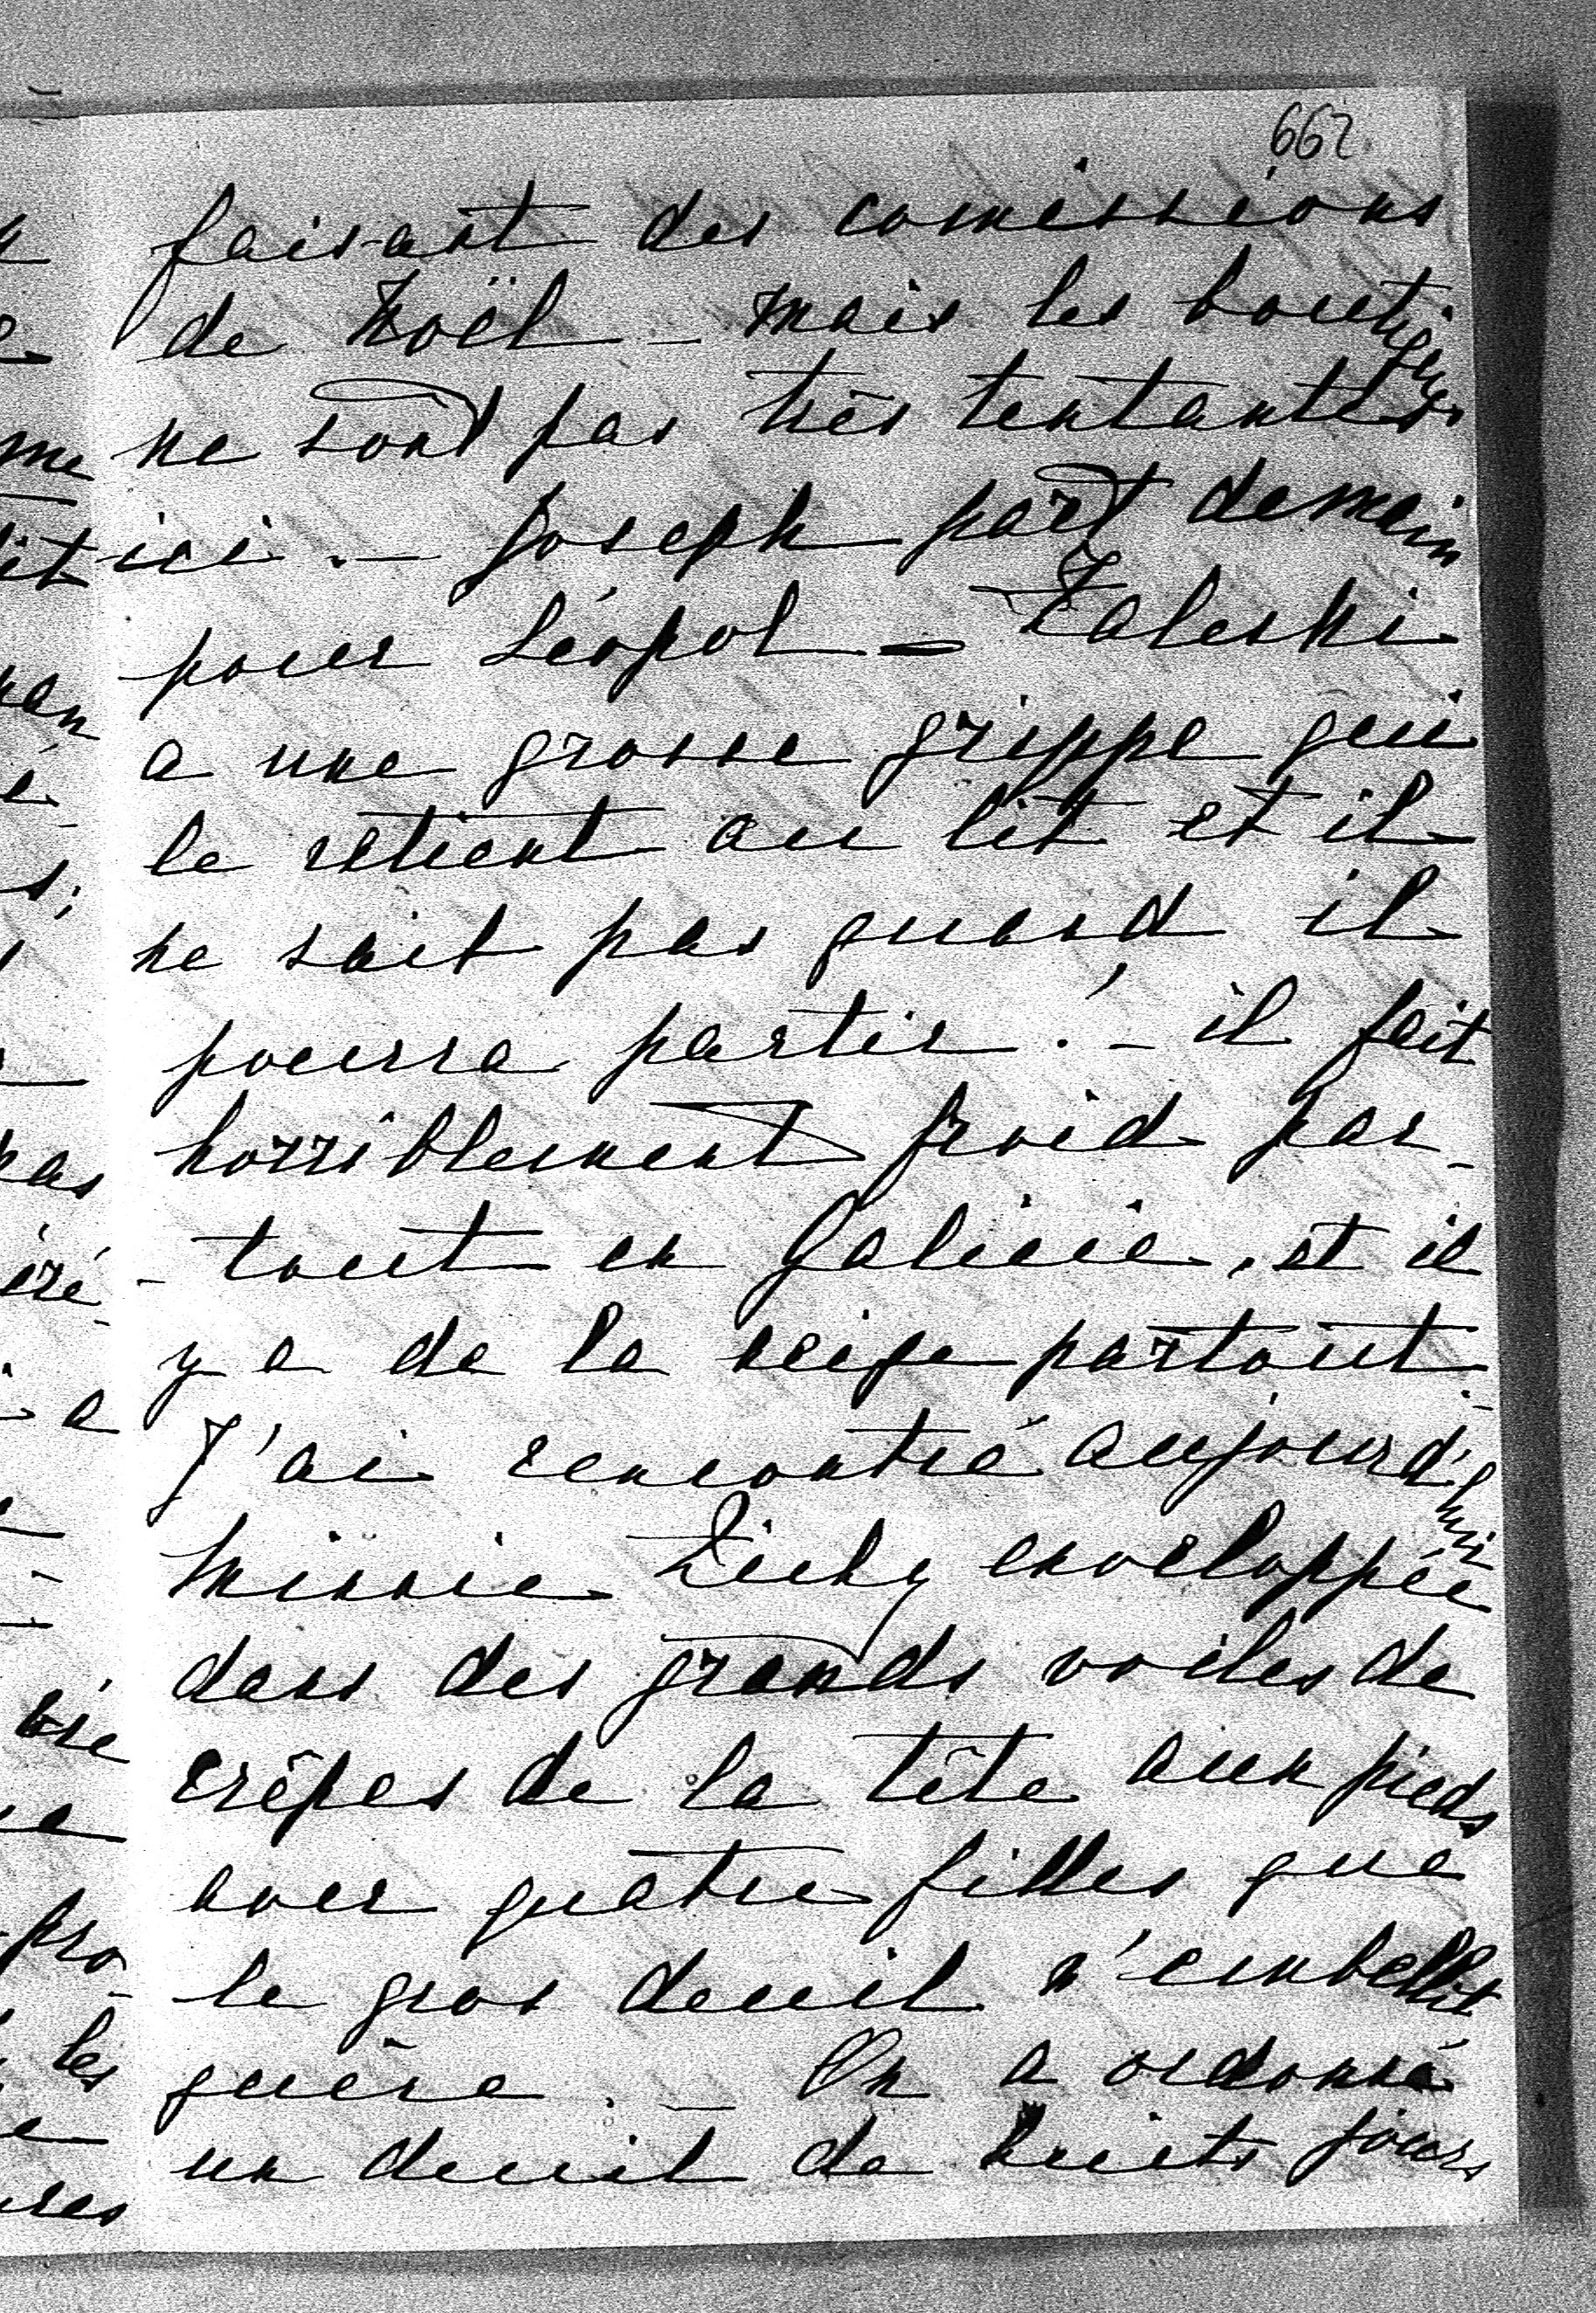 662
faisant des comissions
de Noël – mais les boutiques
ne sont pas très tentantes
ici. – Joseph part demain
pour Léopol – Zaleski
a une grosse grippe qui
le retient au lit et il
ne sait pas quand il
pourra partir! – il fait
horriblement froid par-
-tout en Galicie, et il
y a de la neige partout.
J'ai rencontré aujourd'hui
Minnie Zichy enveloppée
dans des grands voiles de
crêpes de la tête aux pieds
avec quatre filles que
le gros deuil n'embellit
guère. – On a ordonné
un deuil de huits jours